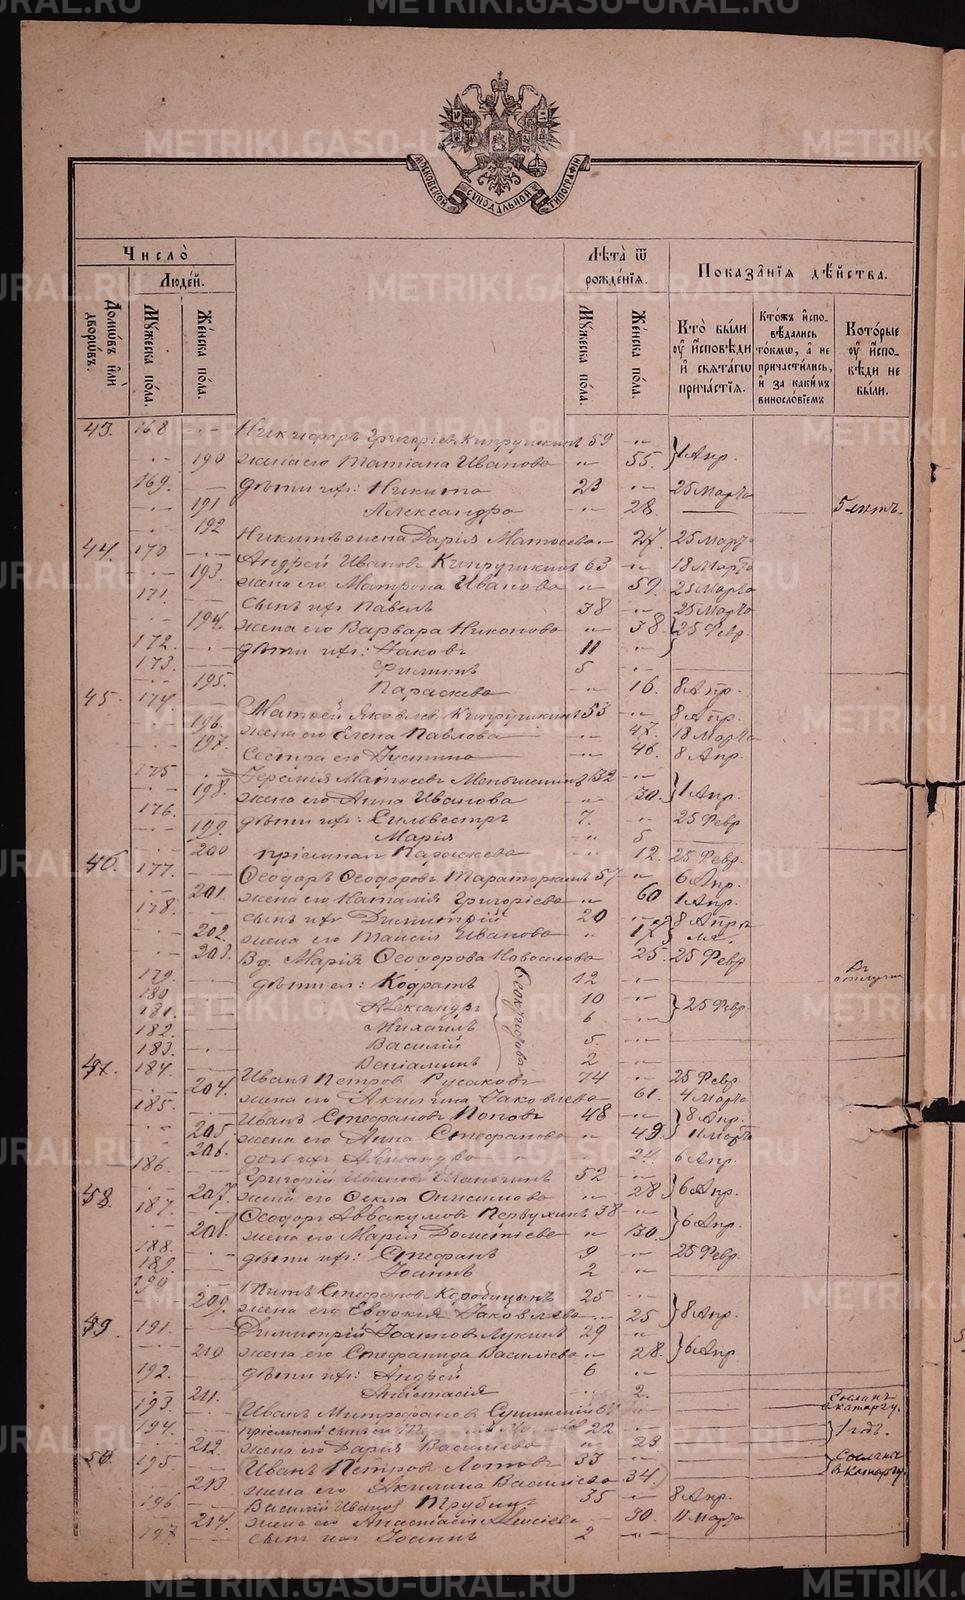 METRIKI.GASO-URAL.RU
МОСКОВСКОЙ СѴНОДАЛЬНОЙ ТИПОГРАФІИ
Число̀
Людéй.
Домѡвъ и҆лѝ дворѡвъ.
Мꙋжеска по́ла.
Же́нска по́ла.
Лѣта̀ ѿ рожде́нїѧ.
Мꙋжеска по́ла.
Же́нска по́ла.
Показа̑нїѧ дѣ́йства.
Кто̀ бы́ли ᲂу҆ и҆сповѣди и҆ свѧта́гѡ прича́стїѧ.
Кто́жъ и҆спо-вѣдались то́кмѡ, а҆ не причасти́лись, и҆ за каки́мъ винословїемъ
Кото́рые ᲂу҆ и҆спо-вѣди не бы́ли.
43. 168 Никифоръ Григорьевъ 59
190 жена его Татіана Иванова 55. 1 Апр.
169. дѣти ихъ: Никита 23 25 Марта
191 Александра 28. 5 лѣтъ.
192 Никиты жена Дарія 27. 25 Марта
44. 170 Андрей Ивановъ 63 18 Марта
193. жена его Матрона Иванова 59. 25 Марта
171. сынъ ихъ Павелъ 38 25 Марта
194. жена его Варвара 38 25 Февр
172. дѣти ихъ: Іаковъ 11
173. Филиппъ 5
195. Параскева 16. 8 Апр.
45. 174. Матѳей Яковлевъ 53 8 Апр.
196. жена его Елена Павлова 47. 18 Марта
197. Сестра его Іустина 46. 8 Апр.
175 Іеремія Матѳеевъ 32
198. жена его Анна Иванова 30. 1 Апр.
176. дѣти ихъ: Сильвестръ 7. 25 Февр
199. Марія 5
200 пріемная Параскева 12. 25 Февр.
46. 177. Ѳеодоръ Ѳеодоровъ 57 6 Апр.
201. жена его Наталія Григоріева 60 1 Апр.
178. сынъ ихъ Димитрій 20 8 Апр
202. жена его Таисія Иванова
203. Вд. Марія Ѳеодорова Новоселова 25. 25 Февр
179. дѣти ея: Кодратъ 12
180 Александръ 10 25 Февр.
181. Михаилъ 6
182. Василій 5.
183. Веніаминъ 2
47. 184. Иванъ Петровъ Русаковъ 74 25 Февр.
204. жена его Акилина Іаковлева 61. 4 Марта
185. Иванъ Стефановъ Поповъ 48 8 Апр.
205. жена его Анна Стефанова 49 11 Марта
206. дочь ихъ Александра 24. 6 Апр.
186. Григорій Ивановъ 52
207. жена его Ѳекла Онисимова 28 6 Апр.
187. Ѳеодоръ Аввакумовъ Первухинъ 38
208. жена его Марія 30. 6 Апр.
188. дѣти ихъ: Стефанъ 9 25 Февр.
189. Іоаннъ 2
190 Титъ Стефановъ Коробицынъ 25
209. жена его Евдокія Іаковлева 25 8 Апр.
49. 191. Димитрій Іоанновъ Лукинъ 29
210 жена его Стефанида Василіева 28. 6 Апр
192. дѣти ихъ: Андрей 6
211. Анастасія 2.
193. Иванъ Митрофановъ Сосланъ въ каторгу.
194. пріемный сынъ его 22 1 годъ.
212. жена его Дарія Василіева 23.
195. Иванъ Петровъ 33 Сосланъ въ каторгу
213. жена его Акилина Василіева 34
196 Василій Ивановъ 35 8 Апр.
214. жена его Анастасія 30. 11 Марта
197 сынъ ихъ Іоаннъ 2